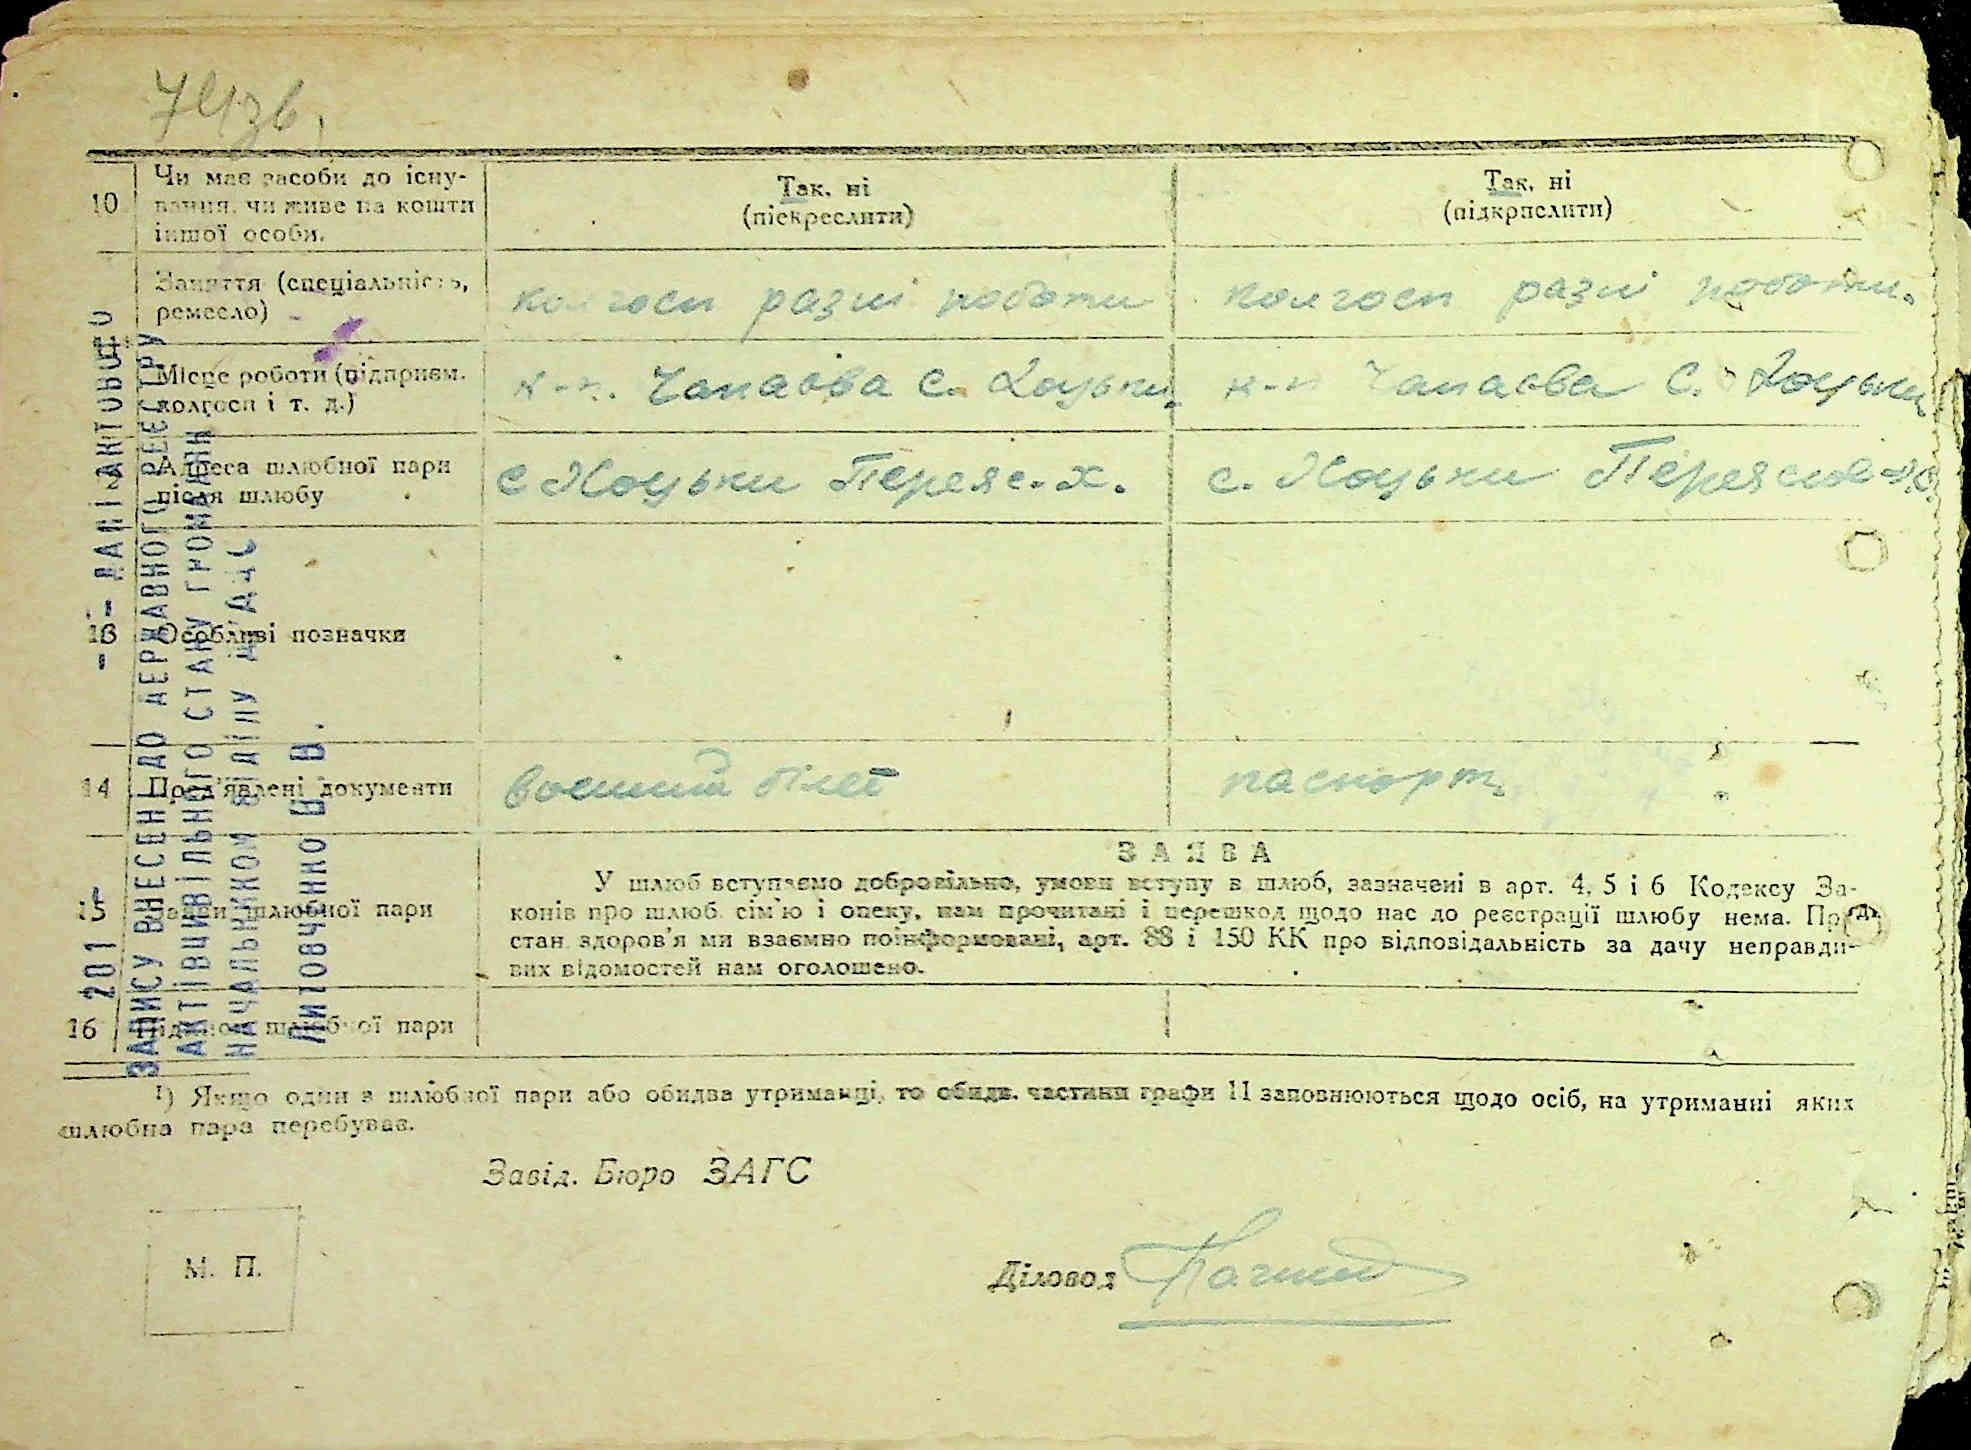 10 Чи має засоби до існу-
вання, чи живе на кошти
іншої особи.
Так, ні
(піскреслити)
Так, ні
(підкрпслити)
Заняття (спеціальність,
ремесло)
колгосп разні роботи
колгосп разні роботи.
Місце роботи (підприєм.
колгосп і т. д.)
к-п. Чапаєва с. Хоцьки
к-п Чапаєва с. Хоцьки
Адреса шлюбної пари
після шлюбу
с Хоцьки Переяс. х.
с. Хоцьки Переяслав
13 Особливі позначки
14 Пред'явлені документи
военний білет
паспорт
15 Заяви шлюбної пари
ЗАЯВА
У шлюб вступаємо добровільно, умови вступу в шлюб, зазначені в арт. 4, 5 і 6 Кодексу За-
конів про шлюб, сім'ю і опеку, нам прочитані і перешкод щодо нас до реєстрації шлюбу нема. Пр
стан здоров'я ми взаємно поінформовані, арт. 88 і 150 КК про відповідальність за дачу неправди-
вих відомостей нам оголошено.
16 Підписи шлюбної пари
1) Якщо один з шлюбної пари або обидва утриманці, то обидв. частини графи 11 заповнюються щодо осіб, на утриманні яких
шлюбна пара перебуває.
Завід. Бюро ЗАГС
М. П.
Діловод
201
ДАНІ АКТОВОГО
ЗАПИСУ ВНЕСЕНІ ДО ДЕРЖАВНОГО РЕЄСТРУ
АКТІВ ЦИВІЛЬНОГО СТАНУ ГРОМАДЯН
НАЧАЛЬНИКОМ ВІДДІЛУ ДРАЦС